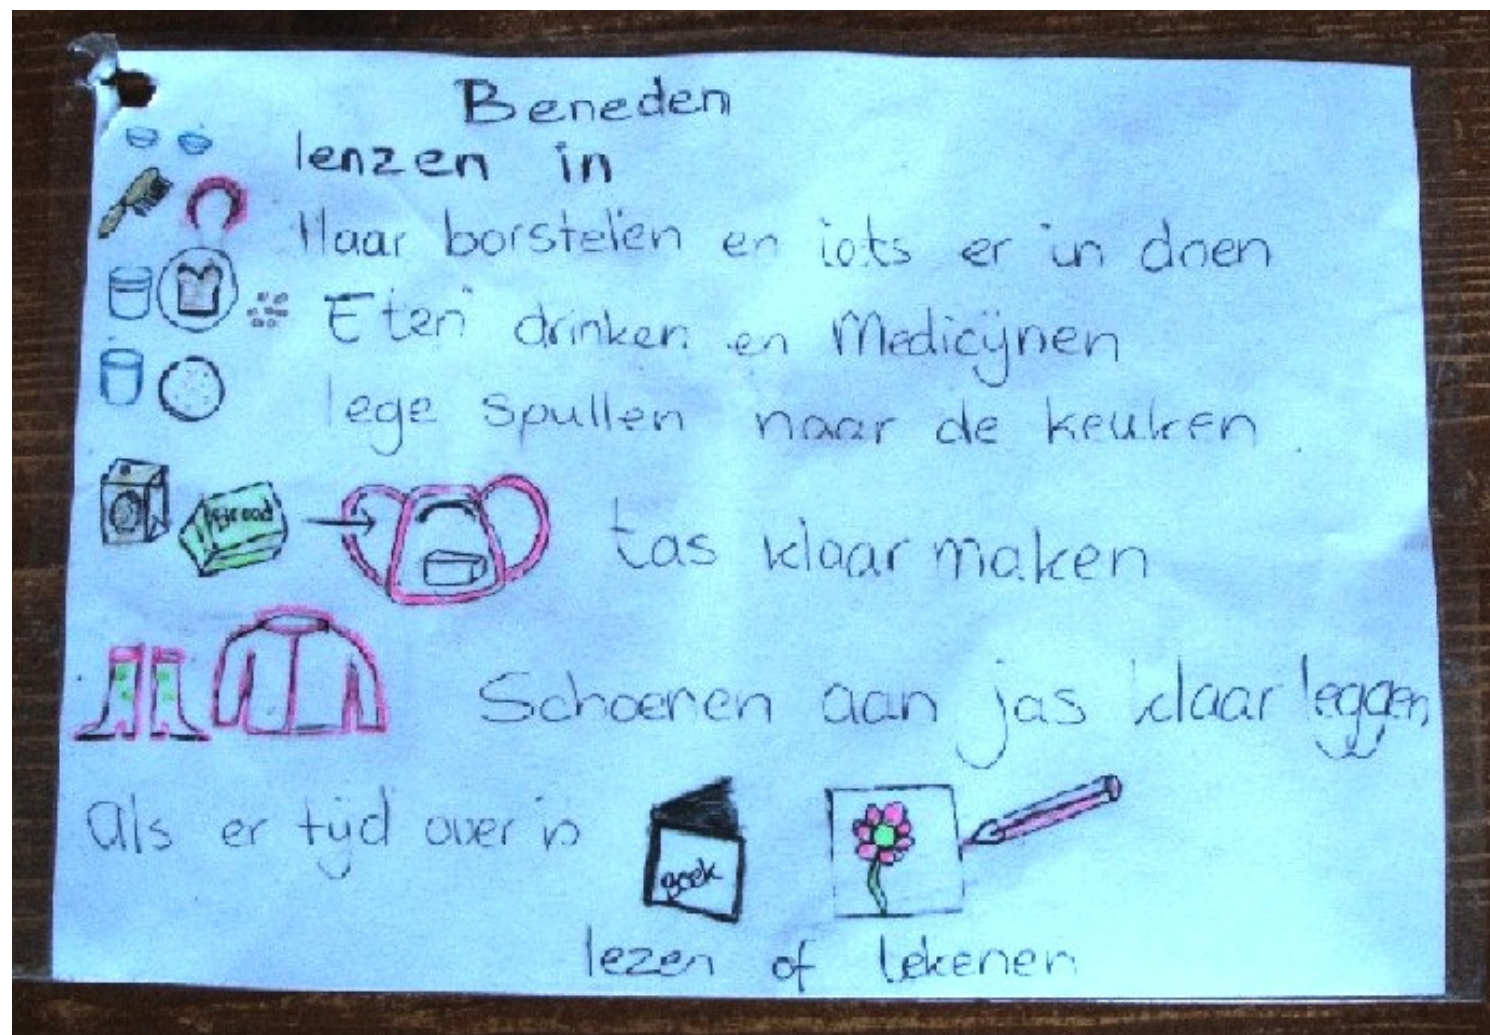 Beneden
lenzen in
Haar borstelen en iets er in doen
Eten drinken en Medicijnen
lege spullen naar de keuken
brood
tas klaar maken
Schoenen aan jas klaar leggen
Als er tijd over is
boek
lezen of tekenen